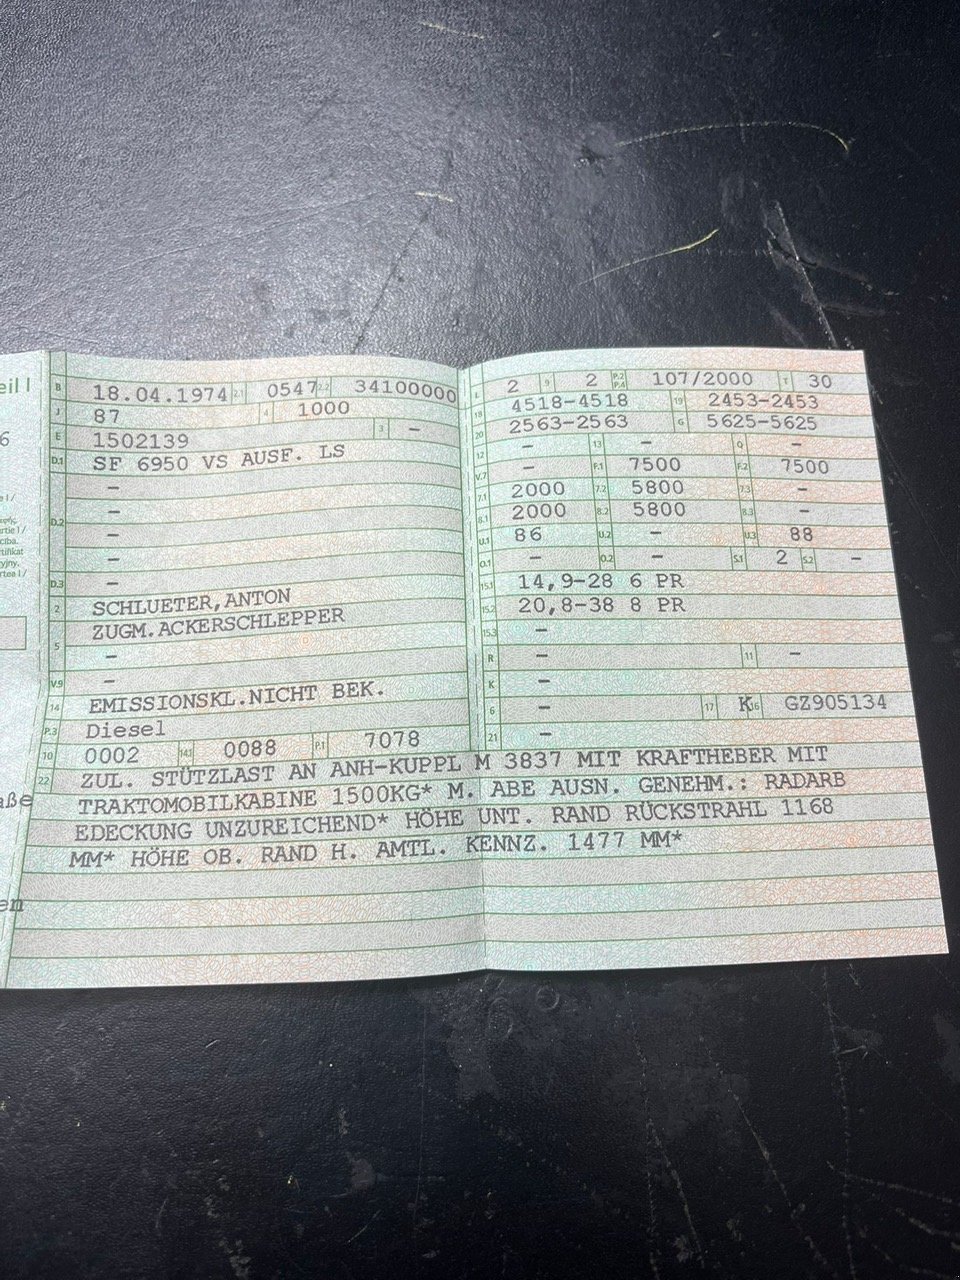 eil I
6
B 18.04.1974 2.1 0547 2.2 34100000
J 87 4 1000
E 1502139 3 –
D.1 SF 6950 VS AUSF. LS
–
D.2 –
–
–
D.3 –
2 SCHLUETER,ANTON
5 ZUGM.ACKERSCHLEPPER
–
V.9 –
14 EMISSIONSKL.NICHT BEK.
P.3 Diesel
10 0002 14.1 0088 P.1 7078
L 2 9 2 P.2 P.4 107/2000 T 30
18 4518-4518 19 2453-2453
20 2563-2563 G 5625-5625
12 – 13 – Q –
V.7 – F.1 7500 F.2 7500
7.1 2000 7.2 5800 7.3 –
8.1 2000 8.2 5800 8.3 –
U.1 86 U.2 – U.3 88
O.1 – O.2 – S.1 2 S.2 –
15.1 14,9-28 6 PR
15.2 20,8-38 8 PR
15.3 –
R – 11 –
K –
6 – 17 K 16 GZ905134
21 –
22 ZUL. STÜTZLAST AN ANH-KUPPL M 3837 MIT KRAFTHEBER MIT
TRAKTOMOBILKABINE 1500KG* M. ABE AUSN. GENEHM.: RADARB
EDECKUNG UNZUREICHEND* HÖHE UNT. RAND RÜCKSTRAHL 1168
MM* HÖHE OB. RAND H. AMTL. KENNZ. 1477 MM*
aße
en